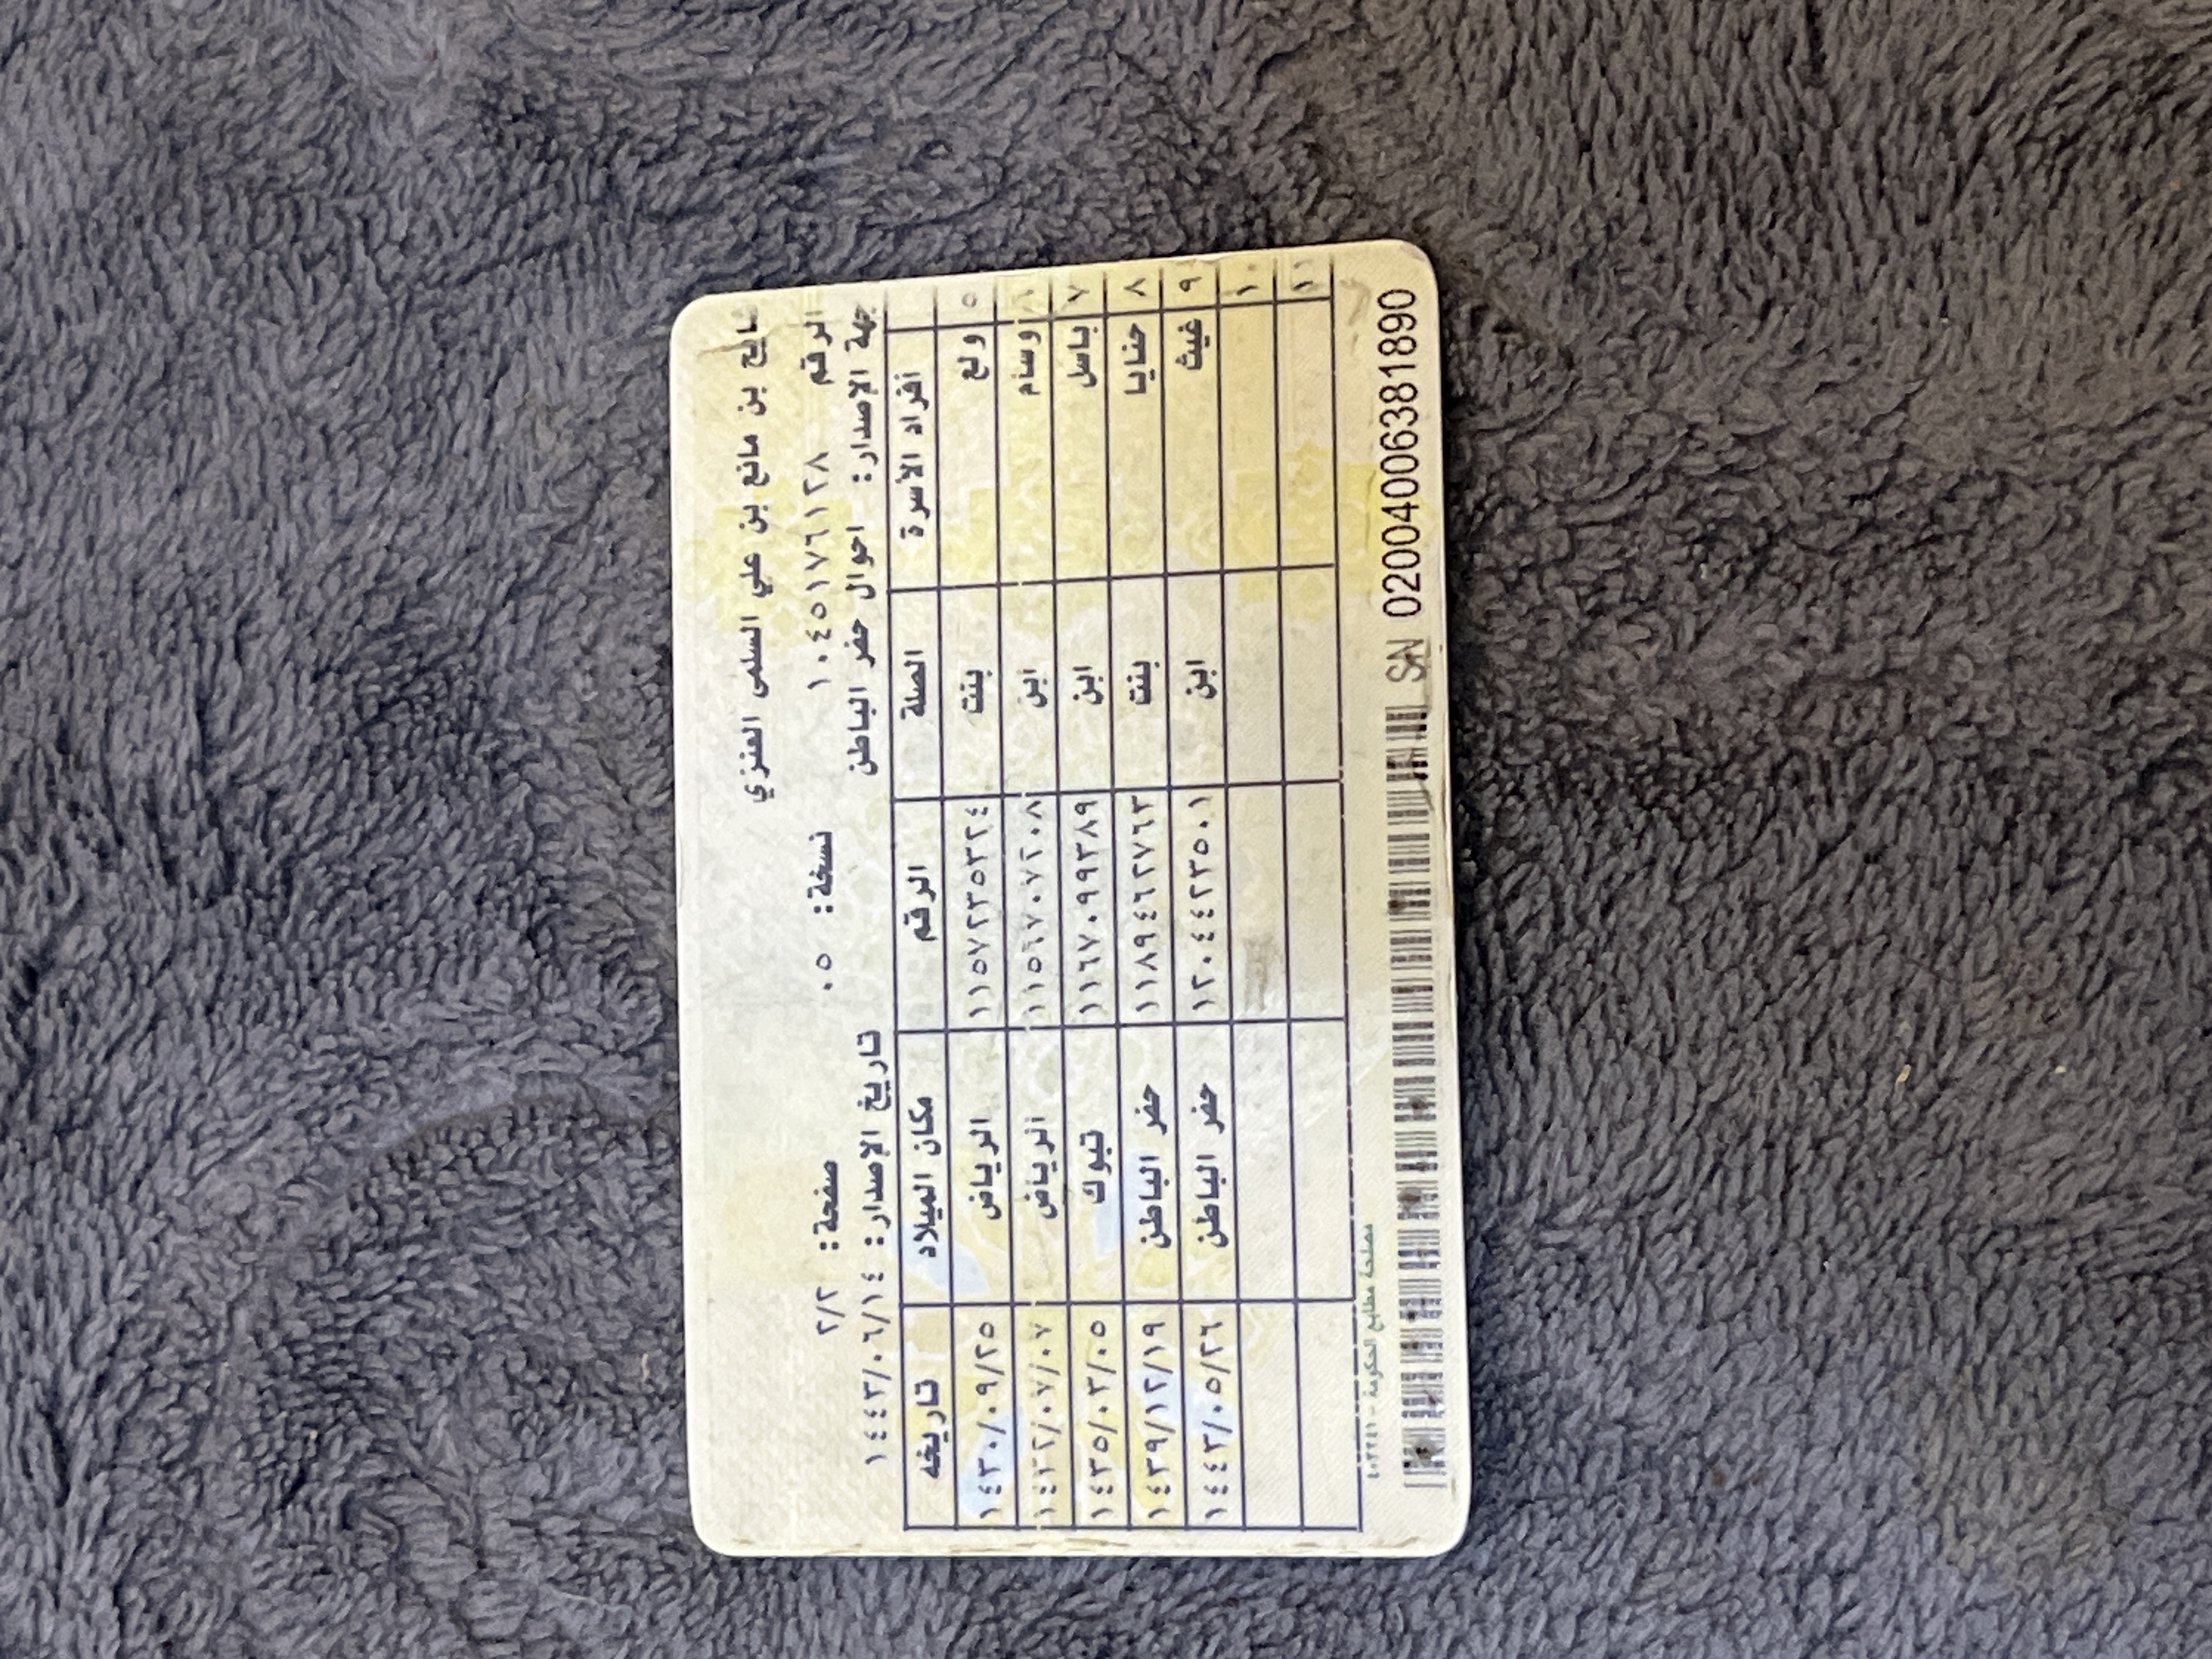 مانع بن علي السلمي العنزي
الرقم ١٠٤٥١٧٦١٢٨ نسخة: ٠٥ صفحة: ٢/٢
جهة الإصدار: احوال حفر الباطن تاريخ الإصدار: ١٤٤٣/٠٦/١٤
أفراد الأسرة الصلة الرقم مكان الميلاد تاريخه
٥ ولع بنت ١١٥٧٢٣٥٣٢٤ الرياض ١٤٣٠/٠٩/٢٥
٦ وسام ابن ١١٥٦٧٠٧٢٠٨ الرياض ١٤٣٢/٠٧/٠٧
٧ باسل ابن ١١٦٧٠٩٩٣٨٩ تبوك ١٤٣٥/٠٣/٠٥
٨ حنايا بنت ١١٨٩٤٦٢٧٦٣ حفر الباطن ١٤٣٩/١٢/١٩
٩ غيث ابن ١٢٠٤٤٢٣٥٠١ حفر الباطن ١٤٤٣/٠٥/٢٦
١٠
١١
مصلحة مطابع الحكومة -
SN 0200400638189​0